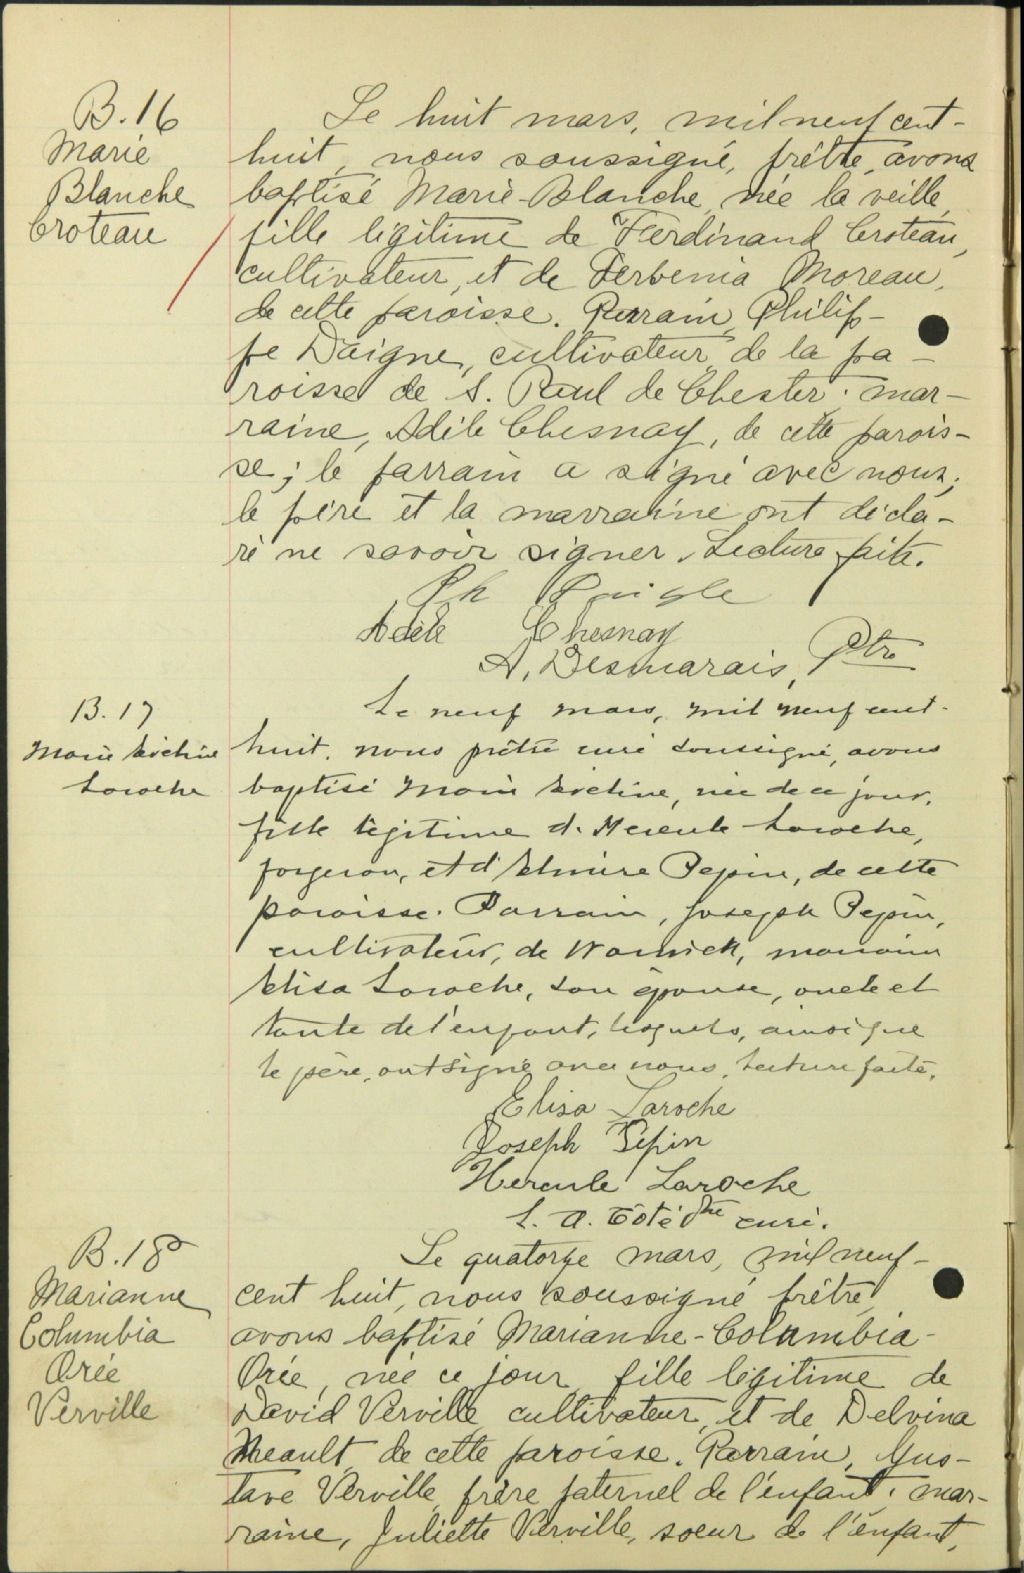 B. 16
Marie
Blanche
Croteau
Le huit mars, mil neuf cent-
huit, nous soussigné, prêtre, avons
baptisé Marie-Blanche, née la veille,
fille légitime de Ferdinand Croteau,
cultivateur, et de Verbenia Moreau,
de cette paroisse. Parrain, Philip-
pe Daigne, cultivateur, de la pa-
roisse de S. Paul de Chester; mar-
raine, Adèle Chesnay, de cette parois-
se; le parrain a signé avec nous;
le père et la marraine ont décla-
ré ne savoir signer. Lecture faite.
Ph Daigle
Adèle Chesnay
A. Desmarais, Ptre
B. 17
Marie Évéline
Laroche
Le neuf mars, mil neuf cent-
huit, nous prêtre curé soussigné, avons
baptisé Marie Évéline, née de ce jour,
fille légitime d'Hercule Laroche,
forgeron, et d'Elmire Pepin, de cette
paroisse. Parrain, Joseph Pepin,
cultivateur, de Warwick, marraine
Elisa Laroche, son épouse, oncle et
tante de l'enfant, lesquels, ainsi que
le père, ont signé avec nous. Lecture faite.
Elisa Laroche
Joseph Pépin
Hercule Laroche
L. A. Côté ptre curé.
B. 18
Marianne
Columbia
Orée
Verville
Le quatorze mars, mil neuf-
cent huit, nous soussigné prêtre,
avons baptisé Marianne-Columbia-
Orée, née ce jour, fille légitime de
David Verville, cultivateur, et de Delvina
Neault, de cette paroisse. Parrain, Gus-
tave Verville, frère paternel de l'enfant; mar-
raine, Juliette Verville, soeur de l'enfant,